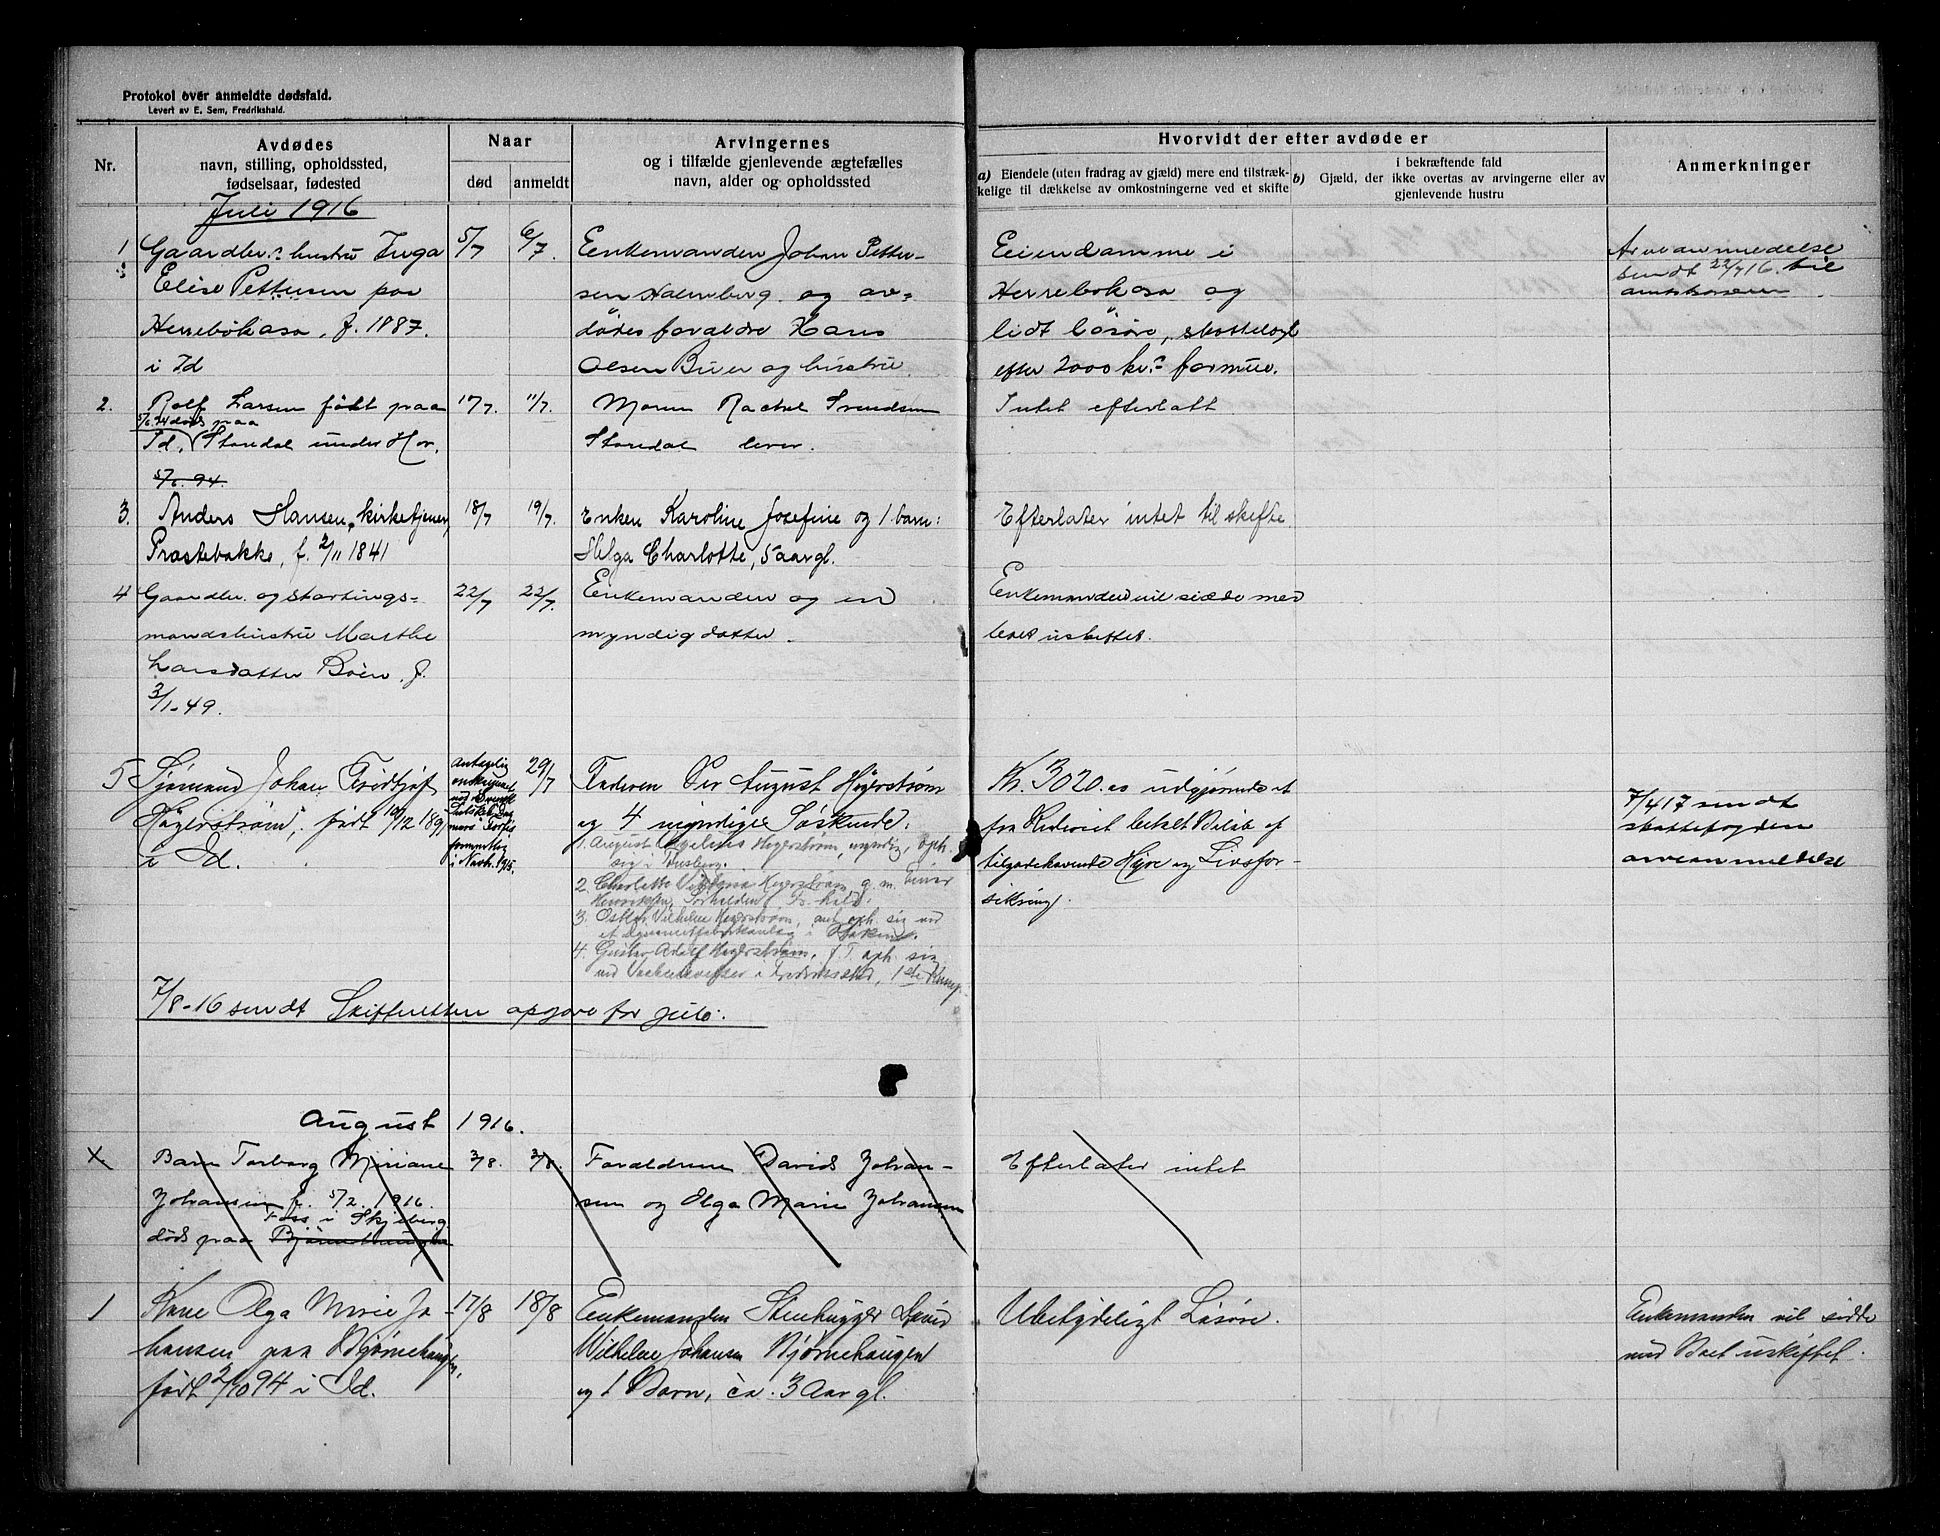 Protokol over anmeldte dødsfald.
Levert av E. Sem, Fredrikshald.
Nr.
Avdødes
navn, stilling, opholdssted,
fødselsaar, fødested
Naar
død
anmeldt
Arvingernes
og i tilfælde gjenlevende ægtefælles
navn, alder og opholdssted
Hvorvidt der efter avdøde er
a) Eiendele (uten fradrag av gjæld) mere end tilstræk-
kelige til dækkelse av omkostningerne ved et skifte
b) Gjæld, der ikke overtas av arvingerne eller av
i bekræftende fald
gjenlevende hustru
Anmerkninger
Juli 1916
1
Gaardbr. hustru Inga
Elise Pettersen paa
Herrebøkasa, f. 1887.
i Id
5/7
6/7.
Enkemanden Johan Petter-
sen Holmberg og av-
dødes forældre Hans
Olsen Buer og hustru
Eiendamme i
Herrebøkasa og
lidt løsøre, skattelagt
efter 2000 kr. formue.
Arveanmeldelse
sendt 22/7 16. til
amtskassern.
2.
Rolf Larsen født paa
5/6.94 død paa
Id, Storedal under Hov.
5/6.94.
17/7.
11/7.
Moren Rachel Svendsen
Storedal lever.
Intet efterlatt
3.
Anders Hansen, kirketjener,
Præstebakke, f. 2/11 1841
18/7
19/7.
Enken Karoline Josefine og 1 barn:
Helga Charlotte, 5 aar gl.
Efterlater intet til skifte.
4
Gaardbr. og stortings-
mandshustru Marthe
Larsdatter Böen. f.
3/1-49.
22/7
22/7.
Enkemanden og en
myndig datter.
Enkemanden vil sidde med
boet uskiftet.
5
Sjømand Johan Fridtjof
Høgerstrøm, født 10/12 189
i Id.
Antagelig
omkommet
ved
i Novb. 1915.
29/7
Faderen Per August Høgerstrøm
og 4 myndige Søskende:
1. August Høgerstrøm, myndig, oph.
sig i Tunsberg.
2. Charlotte Viktoria Høgerstrøm g. m. Einar
Henriksen, Fr.hald.
3. Oskar Vilhelm Høgerstrøm, ant. oph. sig ved
et i
4. Gustav Adolf Høgerstrøm, f. T. oph. sig
ved i Fredriksstad, 1ste Komp.
Kr. 3020.00 udgjørende et
fra Rederiet betalt Beløb af
tilgodehavende Hyre og Livsfor-
sikring.
7/4 17 sendt
skattefogden
arveanmeldelse
7/8-16 sendt Skifteretten opgave for juli.
August 1916.
X.
Barn Torborg Miriane
Johansen f. 5/2. 1916.
Foss i Skjeberg
døds paa Bjørnehaugen
3/8.
3/8.
Forældrene David Johan-
sen og Olga Marie Johansen
Efterlater intet
1
Kone Olga Marie Jo-
hansen paa Bjørnehaugen,
født 2/10 94 i Id.
17/8
18/8
Enkemanden Stenhugger David
Wilhelm Johansen Bjørnehaugen
og 1 Barn, ca. 3 Aar gl.
Ubetydeligt Løsøre.
Enkemanden vil sidde
med Boet uskiftet.